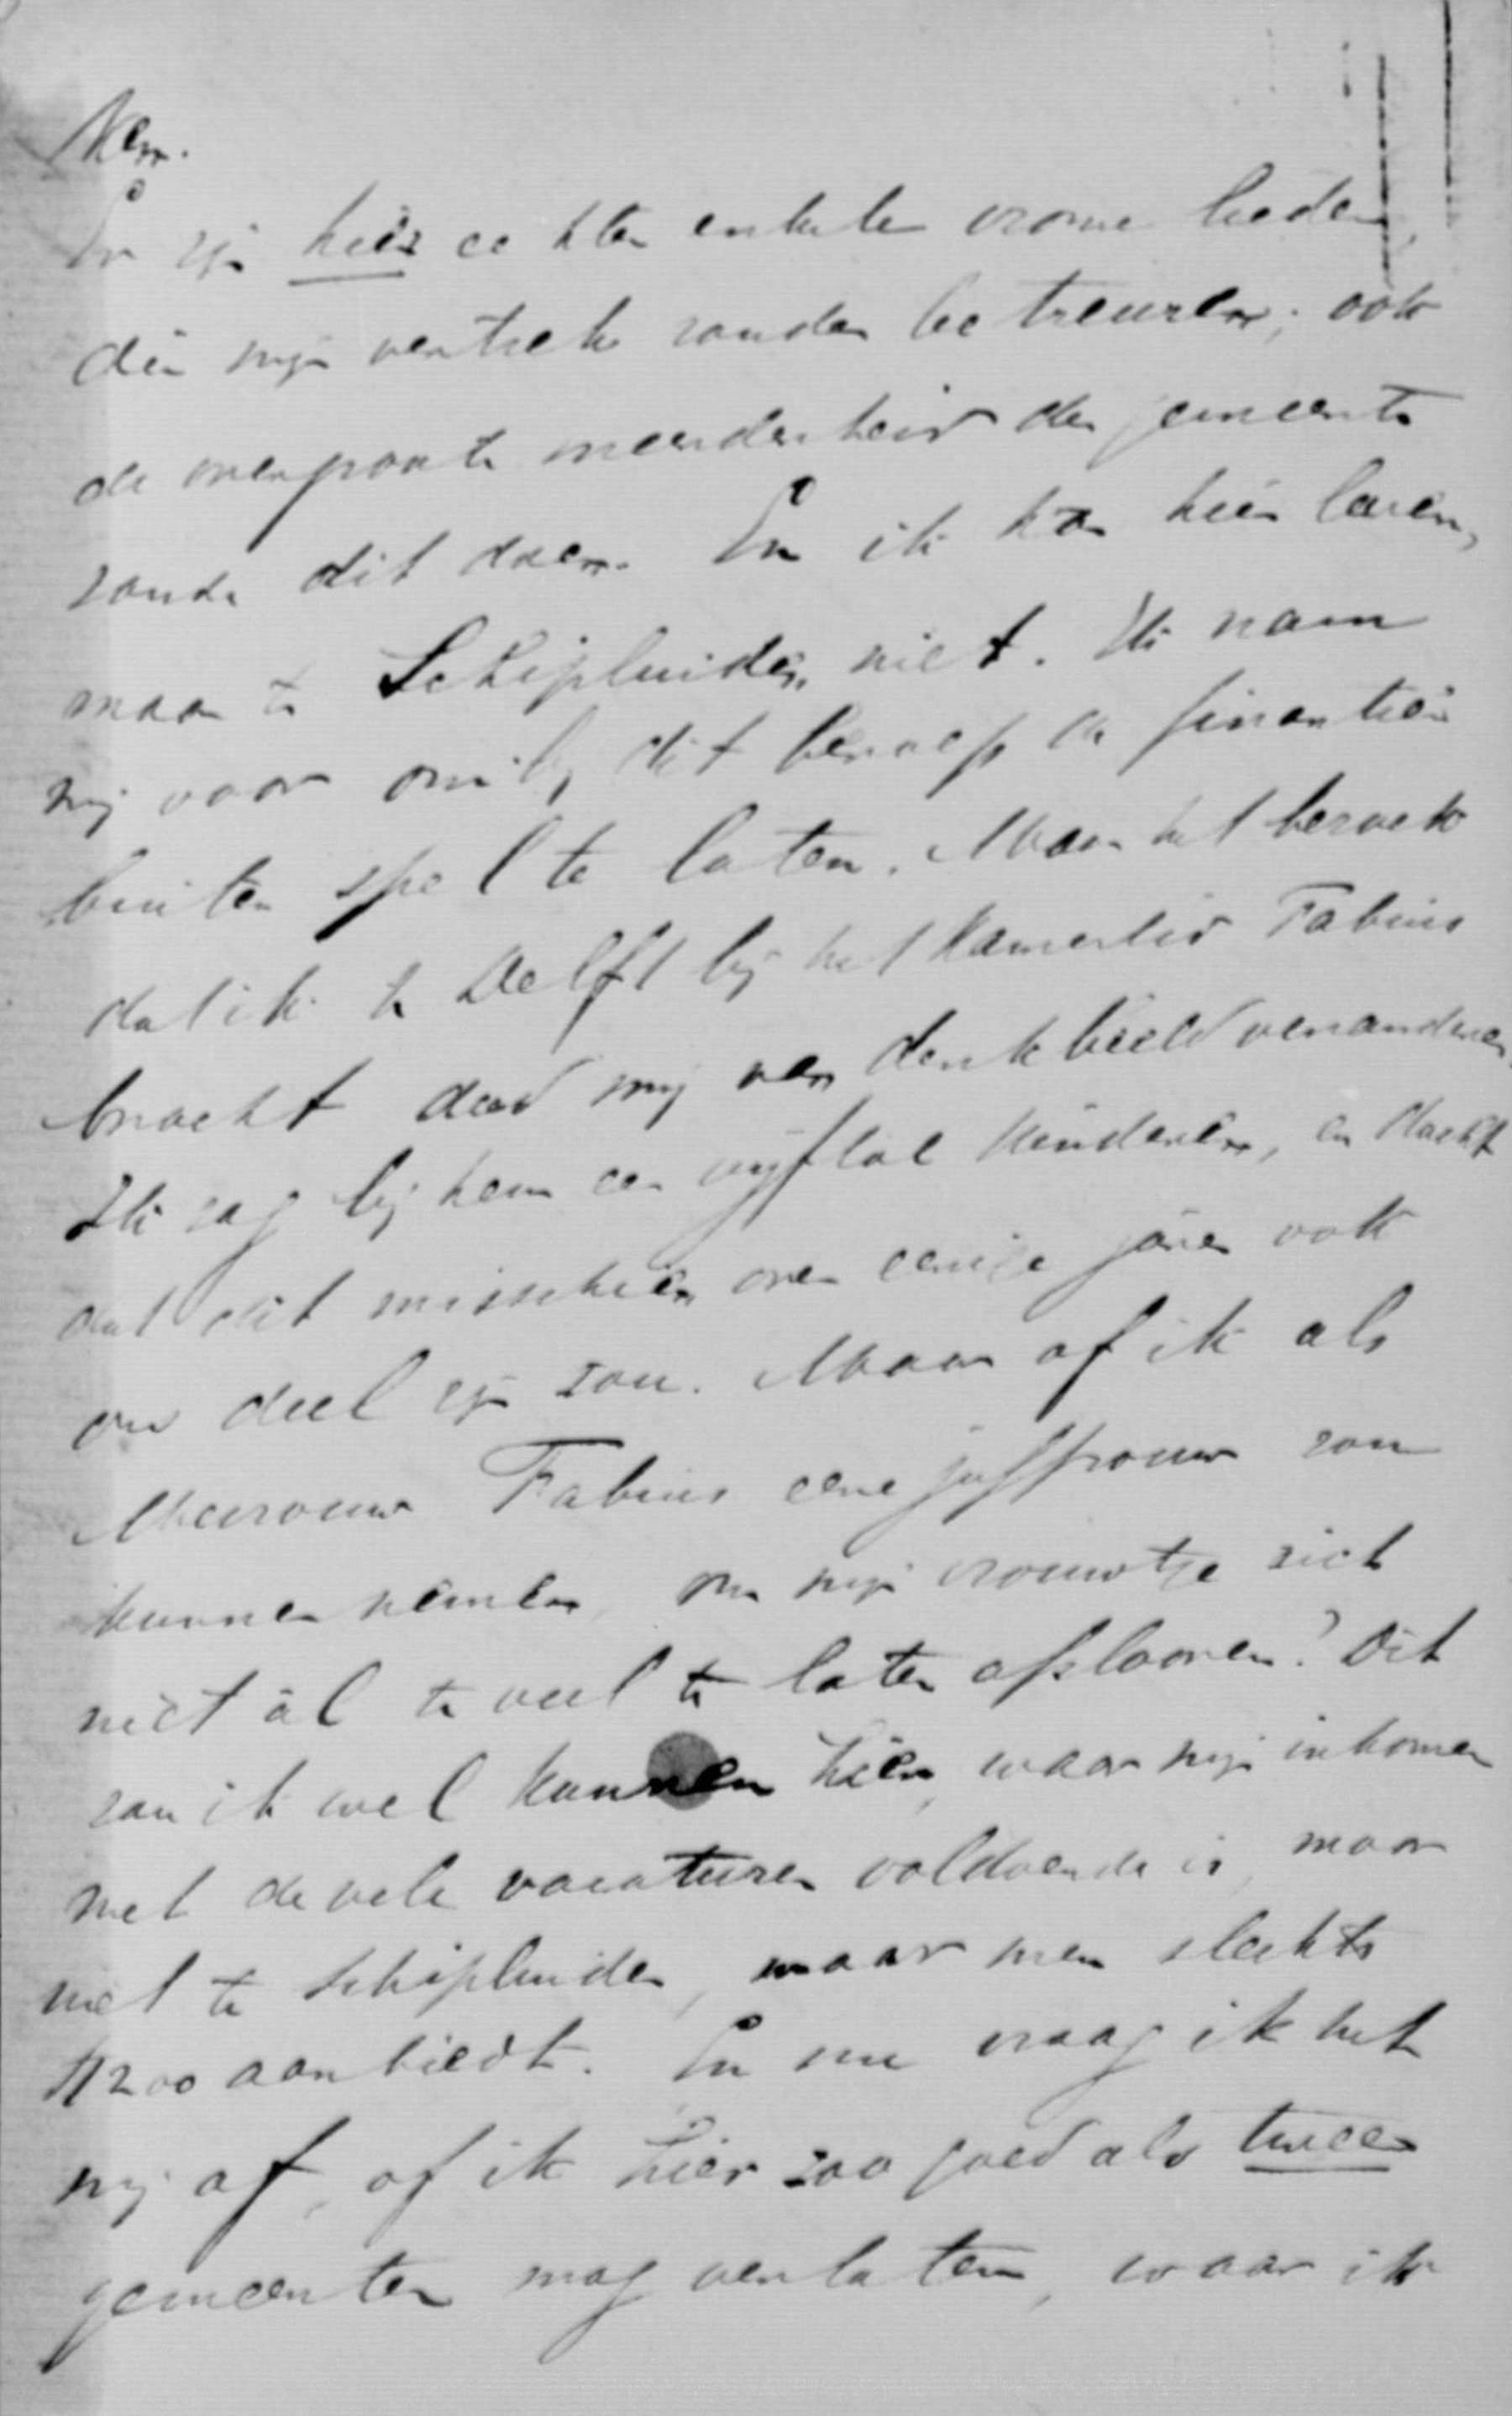 ken.
Er zijn hier echter enkele vrome lieden,
die mijn vertrek zouden betreuren; ook
de overgroote meerderheid der gemeente
zoude dit doen. En ik kan hier leven,
maar te Schipluiden niet. Ik nam
mij voor om bij dit beroep de financiën
buiten spel te laten. Maar het bezoek
dat ik te Delft bij het Kamerlid Fabius
bracht deed mij van denkbeeld veranderen.
Ik zag bij hem een vijftal kinderen, en dacht
dat dit misschien over eenige jaren ook
ons deel zijn zou. Maar of ik als
Mevrouw Fabius eene juffrouw zou
kunnen nemen, om mijn vrouwtje zich
niet al te veel te laten afslooven? Dit
zou ik wel kunnen hier, waar mijn inkomen
met de vele vacaturen voldoende is, maar
niet te Schipluiden, waar men slechts
1200 aanbiedt. En nu vraag ik het
mij af, of ik hier zoo goed als twee
gemeenten mag verlaten, waar ik